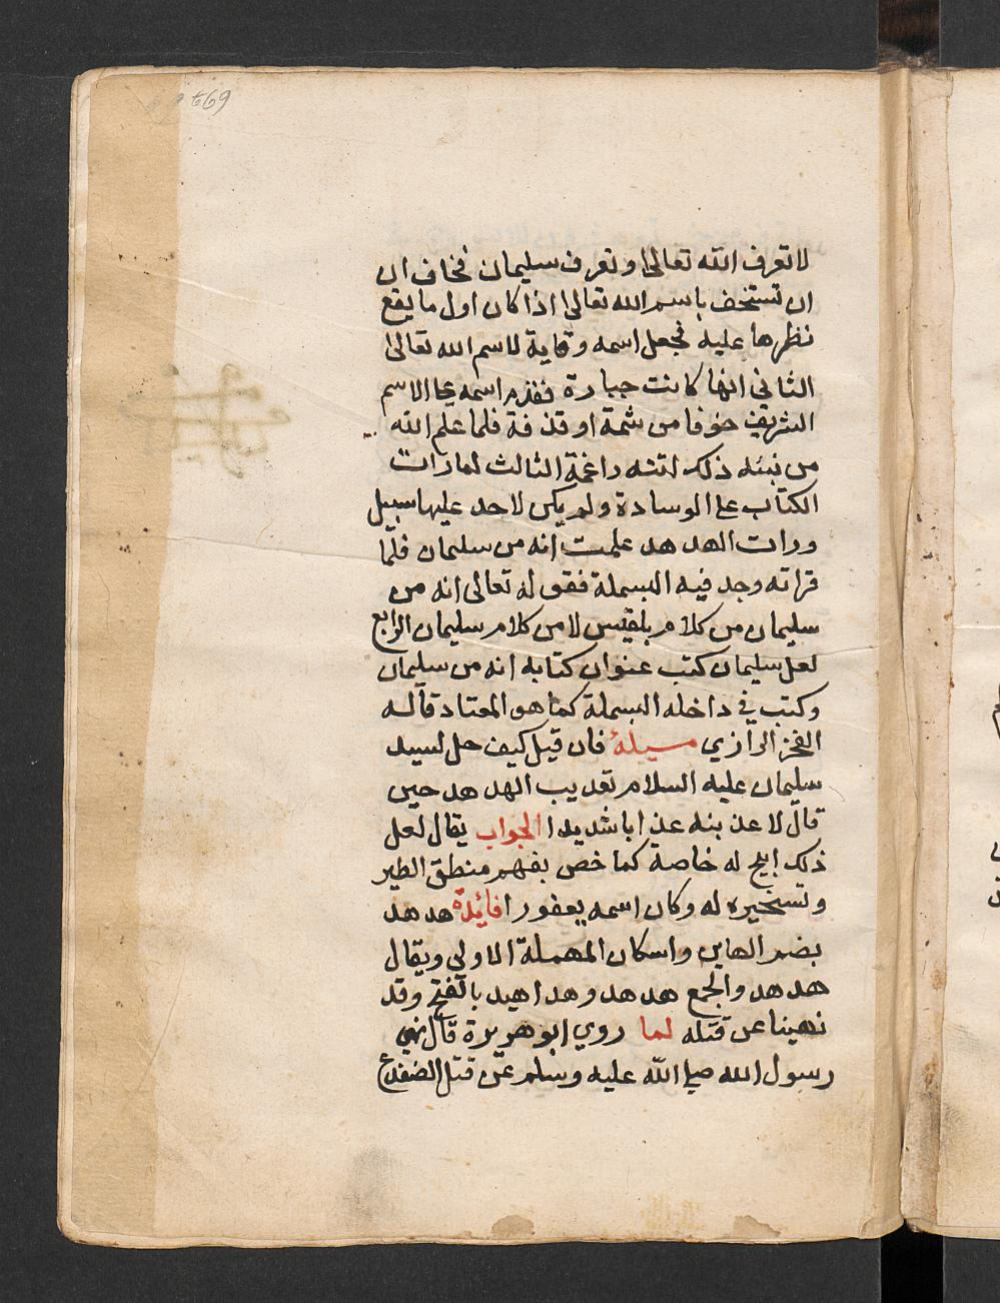 لا تعرف الله تعالى او تعرف سليمان فخاف ان
ان تستخف باسم الله تعالى اذا كان اول ما يقع
نظرها عليه فجعل اسمه وقاية لاسم الله تعالى
الثاني انها كانت جبارة فقدم اسمه على الاسم
الشريف خوفا من شتمة او قذفة فلما علم الله
من نبيه ذلك اتته راغمة الثالث لما رات
الكتاب على الوسادة ولم يكن لاحد عليها سبيل
ورات الهد هد علمت انه من سليمان فلما
قراته وجد فيه البسملة فقوله تعالى انه من
سليمان من كلام بلقيس لا من كلام سليمان الرابع
لعل سليمان كتب عنوان كتابه انه من سليمان
وكتب في داخله البسملة كما هو المعتاد قاله
الفخر الرازي مسيلة فان قيل كيف حل لسيد
سليمان عليه السلام تعذيب الهد هد حين
قال لاعذ بنه عذ ابا شديدا الجواب يقال لعل
ذلك ابيح له خاصة كما خص بفهم منطق الطير
وتسخيره له وكان اسمه يعفورا فائدة هد هد
بضم الهاين واسكان المهملة الاولى ويقال
هد هد والجمع هد هد وهدا هيد بالفتح وقد
نهينا عن قتله لما روي ابو هريرة قال نهى
رسول الله صلى الله عليه وسلم عن قتل الضفدع